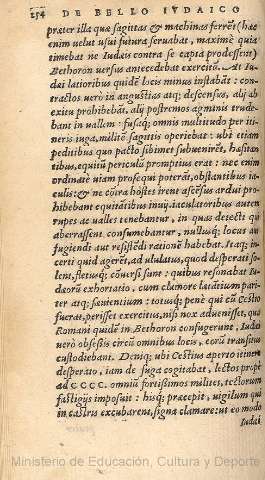 254 DE BELLO IVDAICO
præter illa quæ sagittas & machinas ferēt (hæc
enim uelut usui futura seruabat, maximè quia
timebat ne Iudæi contra se capta prodessent)
Bethoron uersus antecedebat exercitū. At Iu-
dæi latioribus quidē locis minus instabāt: con-
tractos uerò in angustias atq; descensus, alij ab
exitu prohibebāt, alij postremos agminis trude-
bant in uallem: fusaq; omnis multitudo per iti-
neris iuga, militē sagittis operiebat: ubi etiam
peditibus quo pacto subuenirēt, hæsitan
tibus, equitū periculū promptius erat: nec enim
ordinatè uiam prosequi poterāt, obstantibus ia-
culis: & ne cōtra hostes irent ascēsus ardui pro-
hibebant equitatibus inuij. iaculatoribus autem
rupes ac ualles tenebantur, in quas detecti qui
aberrassent consumebantur, nullusq; locus aut
fugiendi aut resistēdi rationē habebat. Itaq; in-
certi quid agerēt, ad ululatus, quod desperati so-
lent, fletusq; cōuersi sunt: quibus resonabat Iu-
dæorū exhortatio, cum clamore lætātium pari-
ter atq; sæuientium: totusq; penè qui cū Cestio
fuerat, perisset exercitus, nisi nox aduenisset, quo
Romani quidē in Bethoron confugerunt, Iudæi
uerò obsessis circū omnibus locis, eorū transitus
custodiebant. Deniq; ubi Cestius aperto itinere
desperato, iam de fuga cogitabat, lectos propè
ad CCCC. omniū fortissimos milites, tectorum
fastigijs imposuit: hisq; præcepit, uigilum qui
in castris excubarent, signa clamare: ut eo modo
Iudæi
Ministerio de Educación, Cultura y Deporte